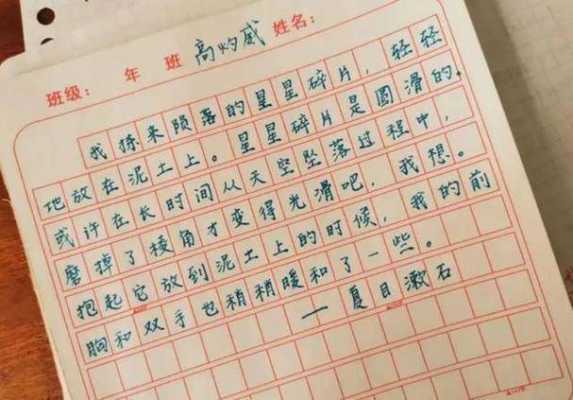 班级： 年 班 高灼威 姓名：
我捡来陨落的星星碎片，轻轻
地放在泥土上。星星碎片是圆滑的，
或许在长时间从天空坠落过程中，
磨掉了棱角才变得光滑吧，我想。
抱起它放到泥土上的时候，我的前
胸和双手也稍稍暖和了一些。
— 夏目漱石